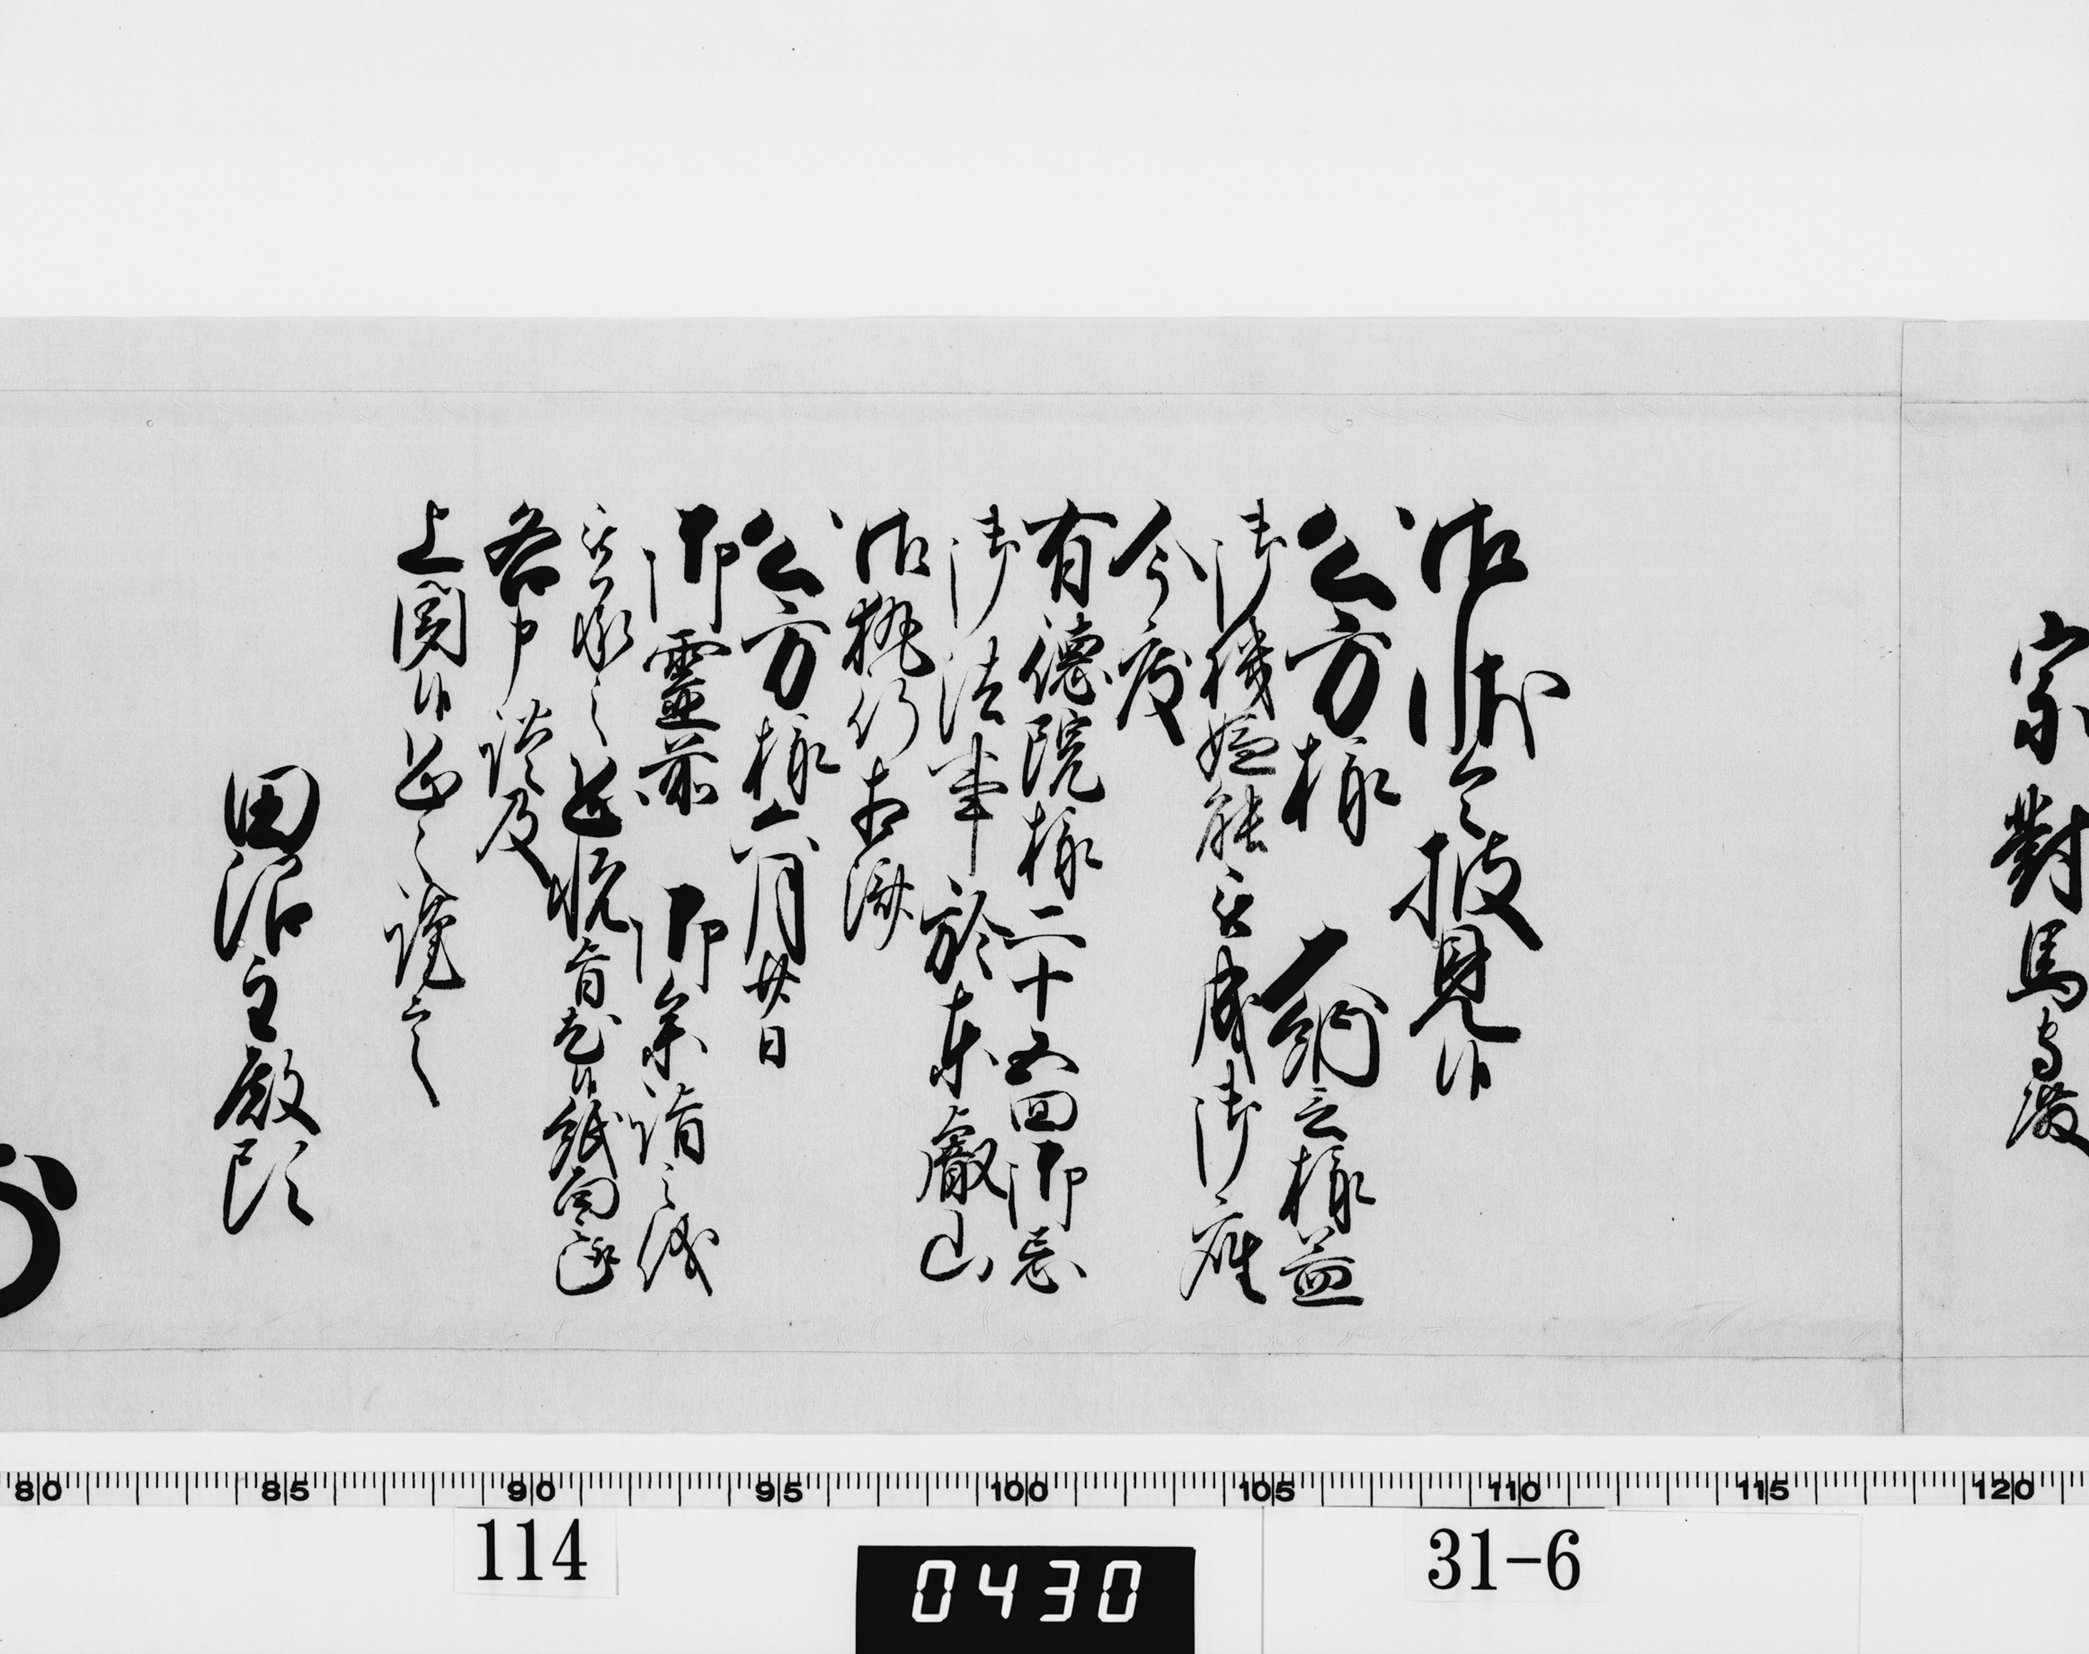 宗對馬守殿
御状令披見候
公方様　大納言様益
御機嫌能被成御座
今度
有徳院様二十五回御忌
御法事於東叡山
御執行相濟
公方様六月廿日
御霊前　御参詣之儀
被承之近悦旨尤候紙面之趣
各申談及
上聞候恐々謹言
田沼主殿頭
80 85 90 95 100 105 110 115 120
114
0430
31-6